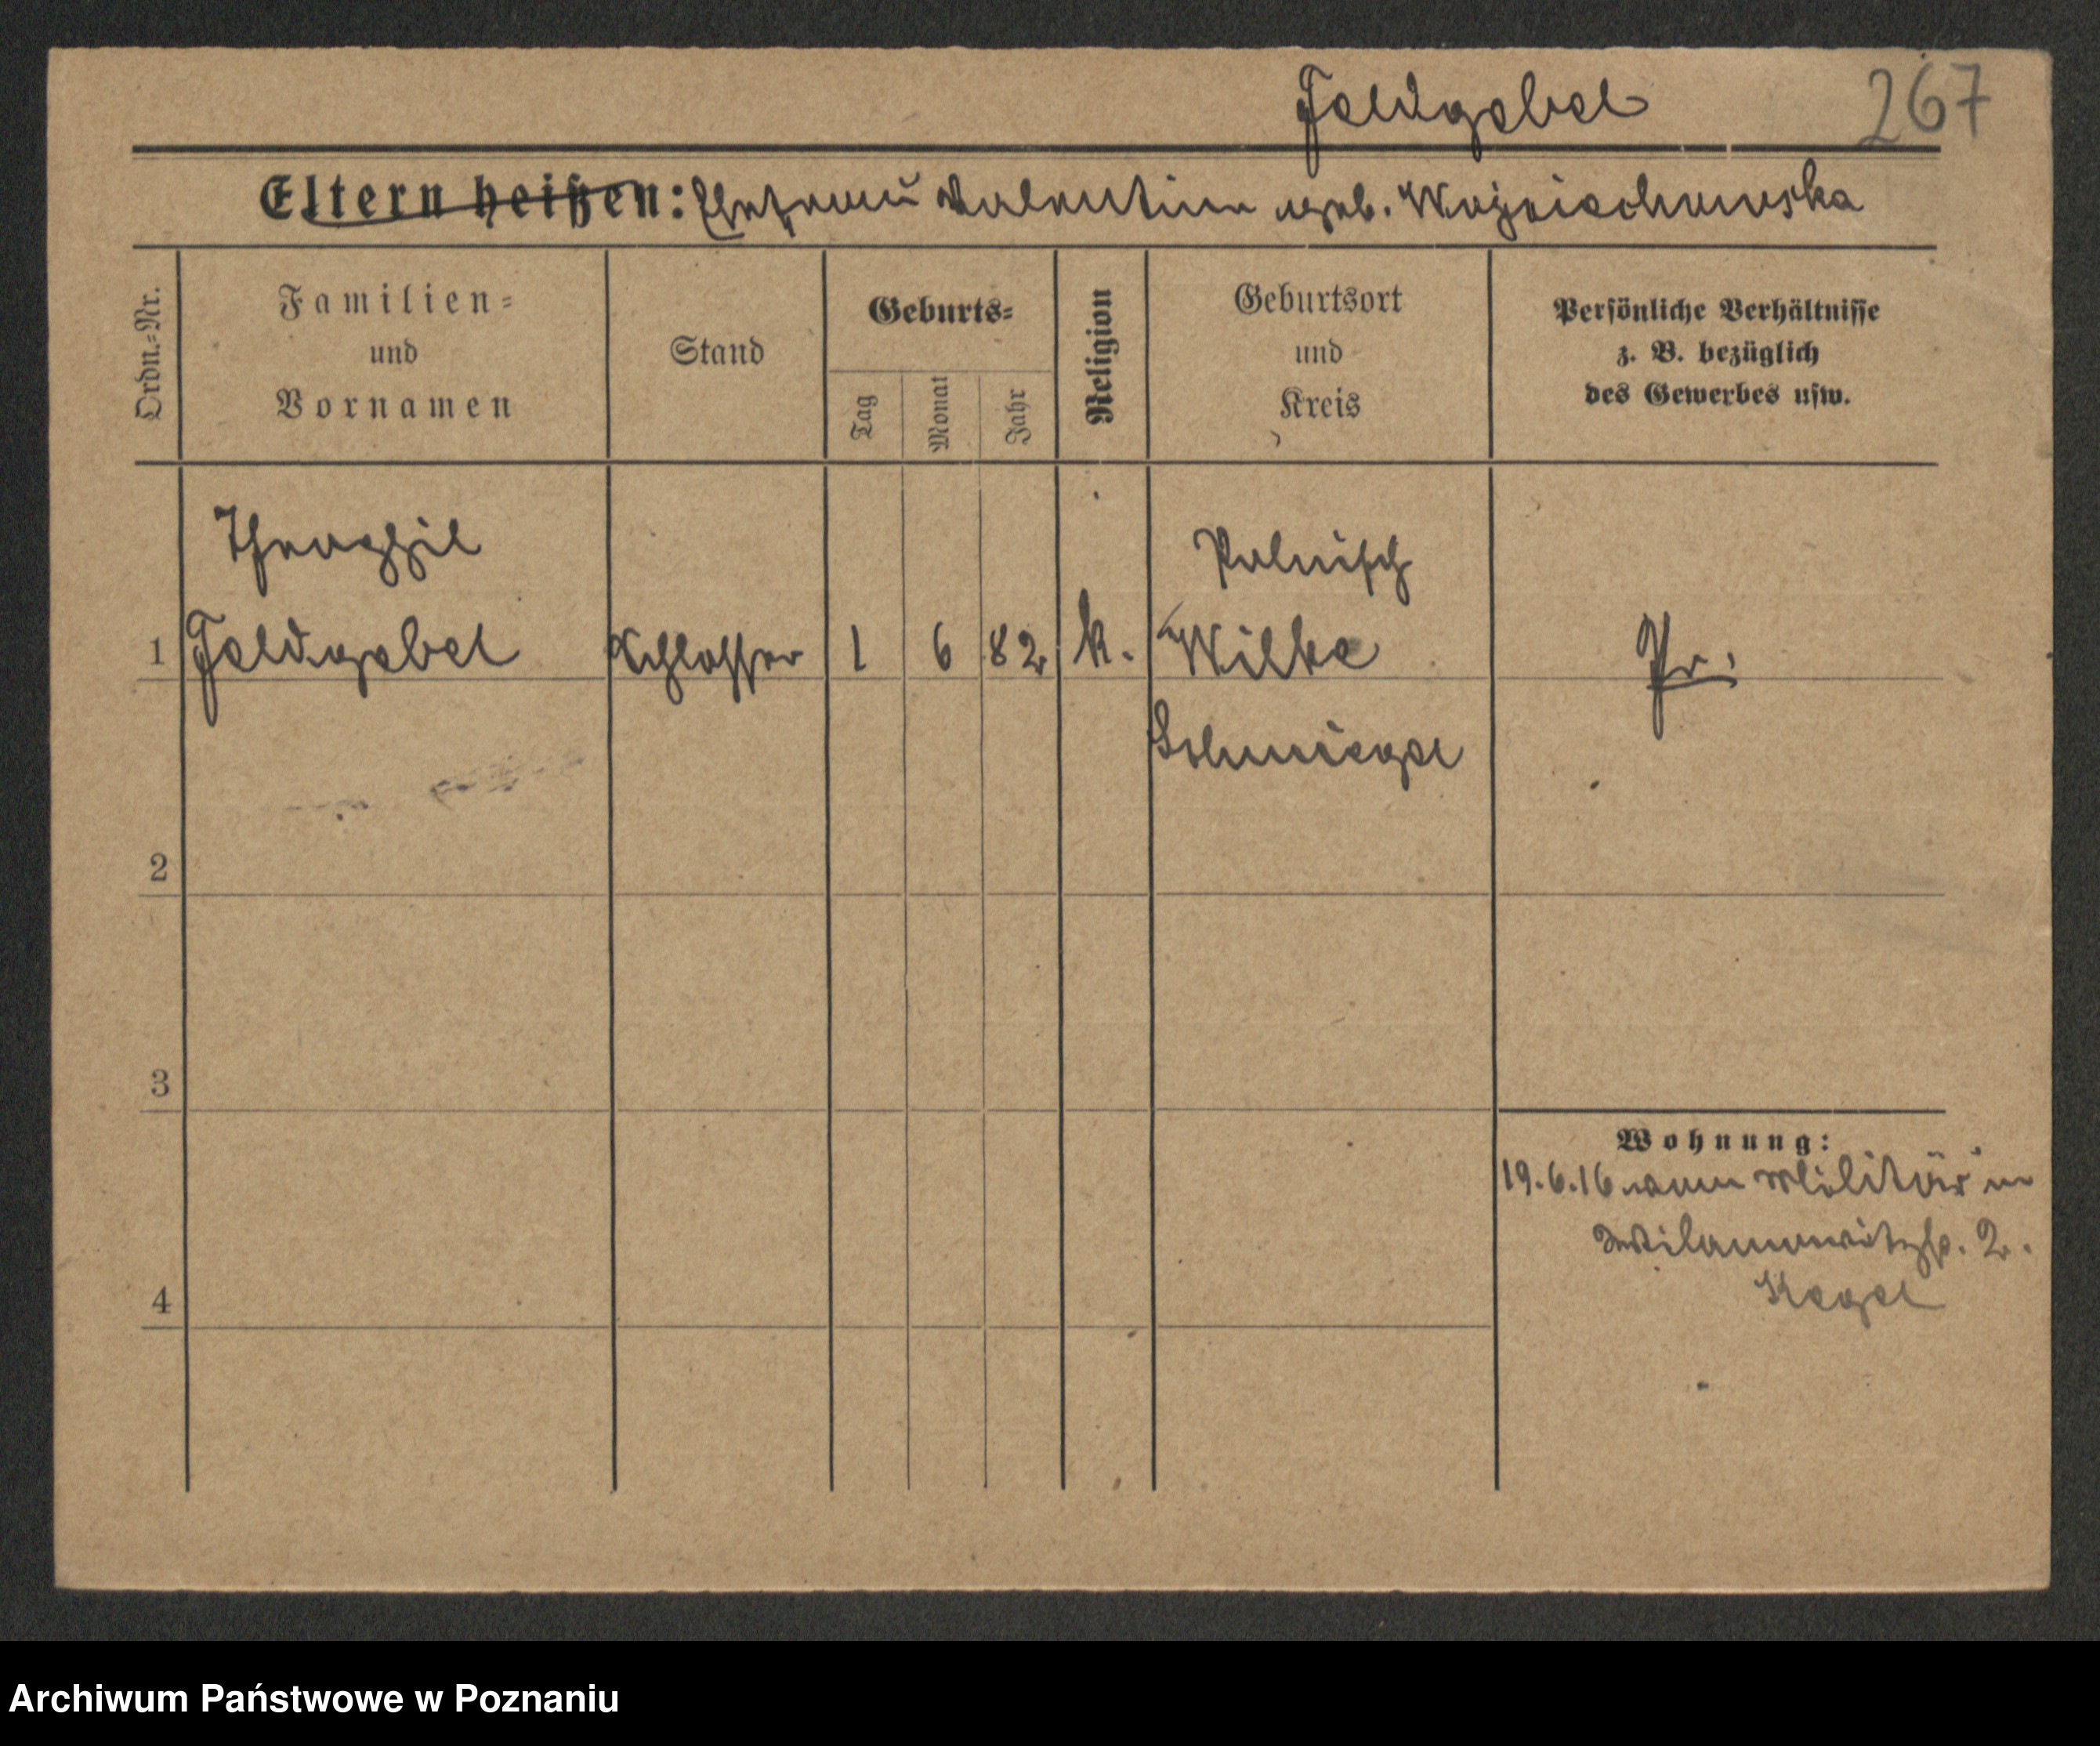 Feldgebel 267
Eltern heißen: Ehefrau Valentine geb. Wojciechowska
Ordn.-Nr.
Familien-
und
Vornamen
Stand
Geburts-
Tag
Monat
Jahr
Religion
Geburtsort
und
Kreis
Persönliche Verhältnisse
z. B. bezüglich
des Gewerbes usw.
Theophil
Polnisch
1 Feldgebel Schlosser 1 6 82 k. Wilke Pr.
Schmiegel
2
3
Wohnung:
19.6.16 vom Militär in
Wilamowitzstr. 2.
4
Kegel
Archiwum Państwowe w Poznaniu